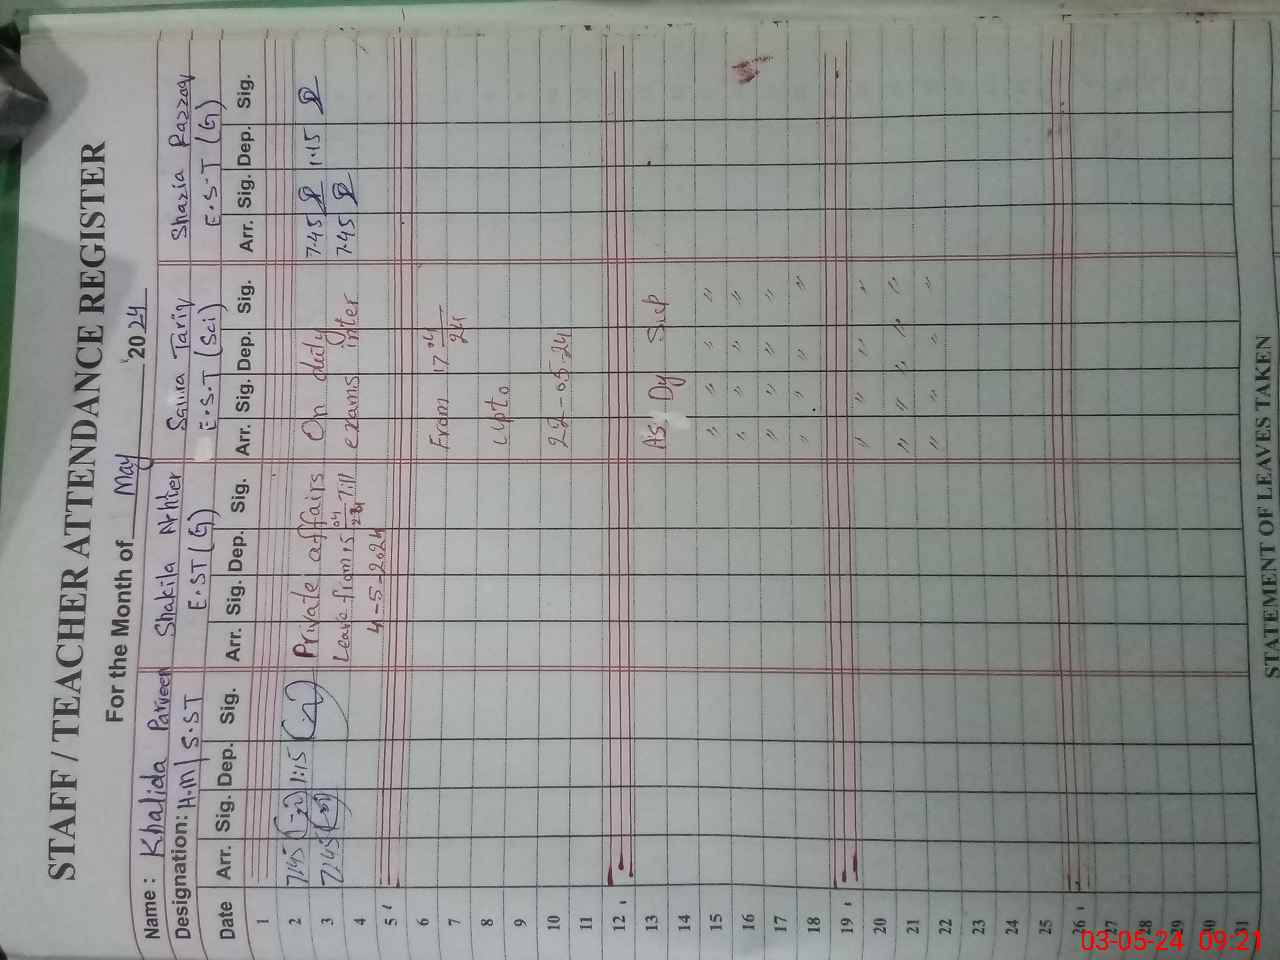 STAFF / TEACHER ATTENDANCE REGISTER
For the Month of May 2024
Name: Khalida Parveen Shakila Akhter Saima Tariq Shazia Razzaq
Designation: H.M / S.ST E.ST (G) E.S.T (Sci) E.S.T (G)
Date Arr. Sig. Dep. Sig. Arr. Sig. Dep. Sig. Arr. Sig. Dep. Sig. Arr. Sig. Dep. Sig.
1
2 7:45 1:15 Private affairs On duty 7.45 1.15
3 7:45 Leave from 15 04/24 Till exams inter 7.45
4 4-5-2024
5
6 From 17 04/24
7
8 upto
9
10 22-05-24
11
12
13 AS Dy Sup
14
15 " " " "
16 " " " "
17 " " " "
18 " " " "
19
20 " " " "
21 " " " "
22 " " " "
23
24
25
26
27
28
29
30
31
STATEMENT OF LEAVES TAKEN
03-05-24 09:21